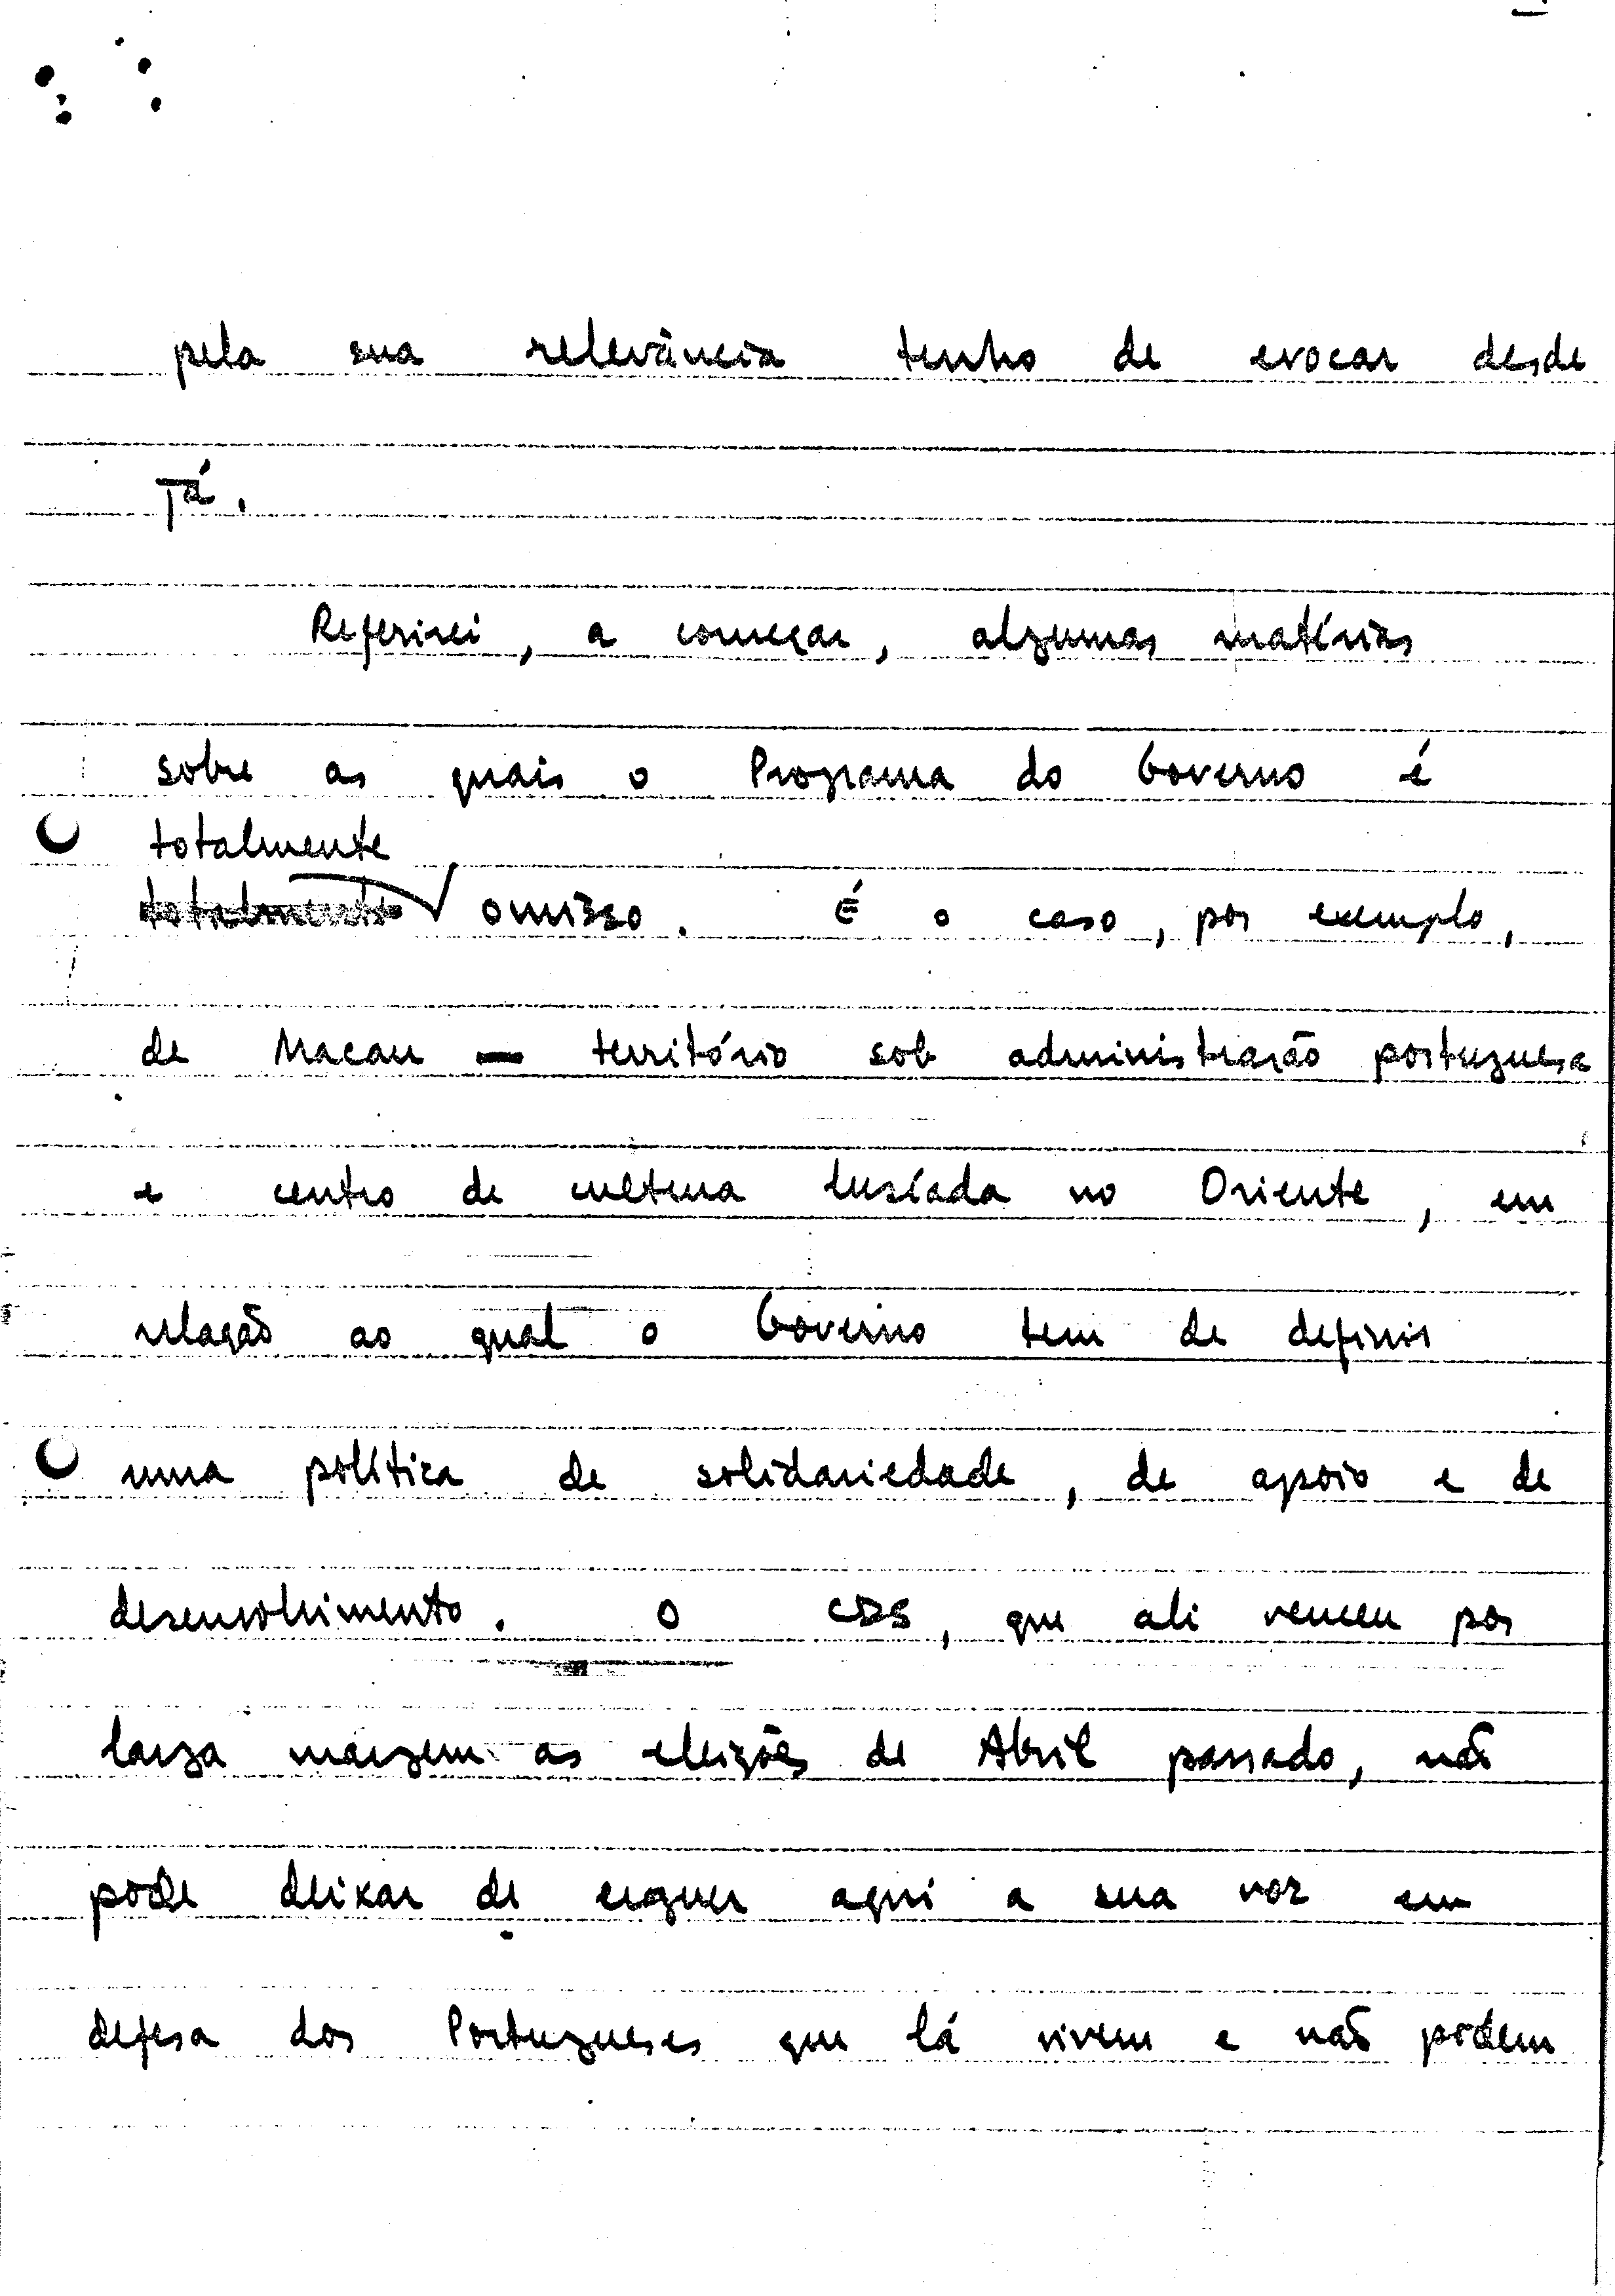 pela sua relevância tenho de evocar desde
já.
Referirei, a começar, algumas matérias
sobre as quais o Programa do Governo é
totalmente
totalmente omisso. É o caso, por exemplo,
de Macau — território sob administração portuguesa
e centro de cultura lusíada no Oriente, em
relação ao qual o Governo tem de definir
uma política de solidariedade, de apoio e de
desenvolvimento. O CDS, que ali venceu por
larga margem as eleições de Abril passado, não
pode deixar de erguer aqui a sua voz em
defesa dos Portugueses que lá vivem e não podem